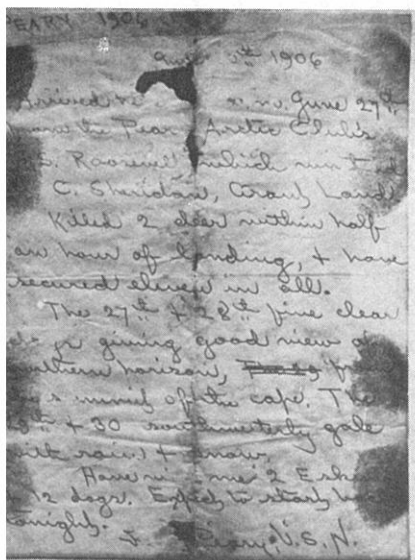 PEARY 1906
5th 1906
Arrived June 27th
from the Peary Arctic Club's
S. Roosevelt which
C. Sheridan, Grant Land
Killed 2 deer within half
an hour of landing, & have
secured eleven in all.
The 27th & 28th fine clear
giving good view of
northern horizon,
summit of the cape. The
29th & 30 southwesterly gale
with rain & snow.
Have me 2 Esk
12 dogs. Expect to start
tonight.
Peary, U.S.N.